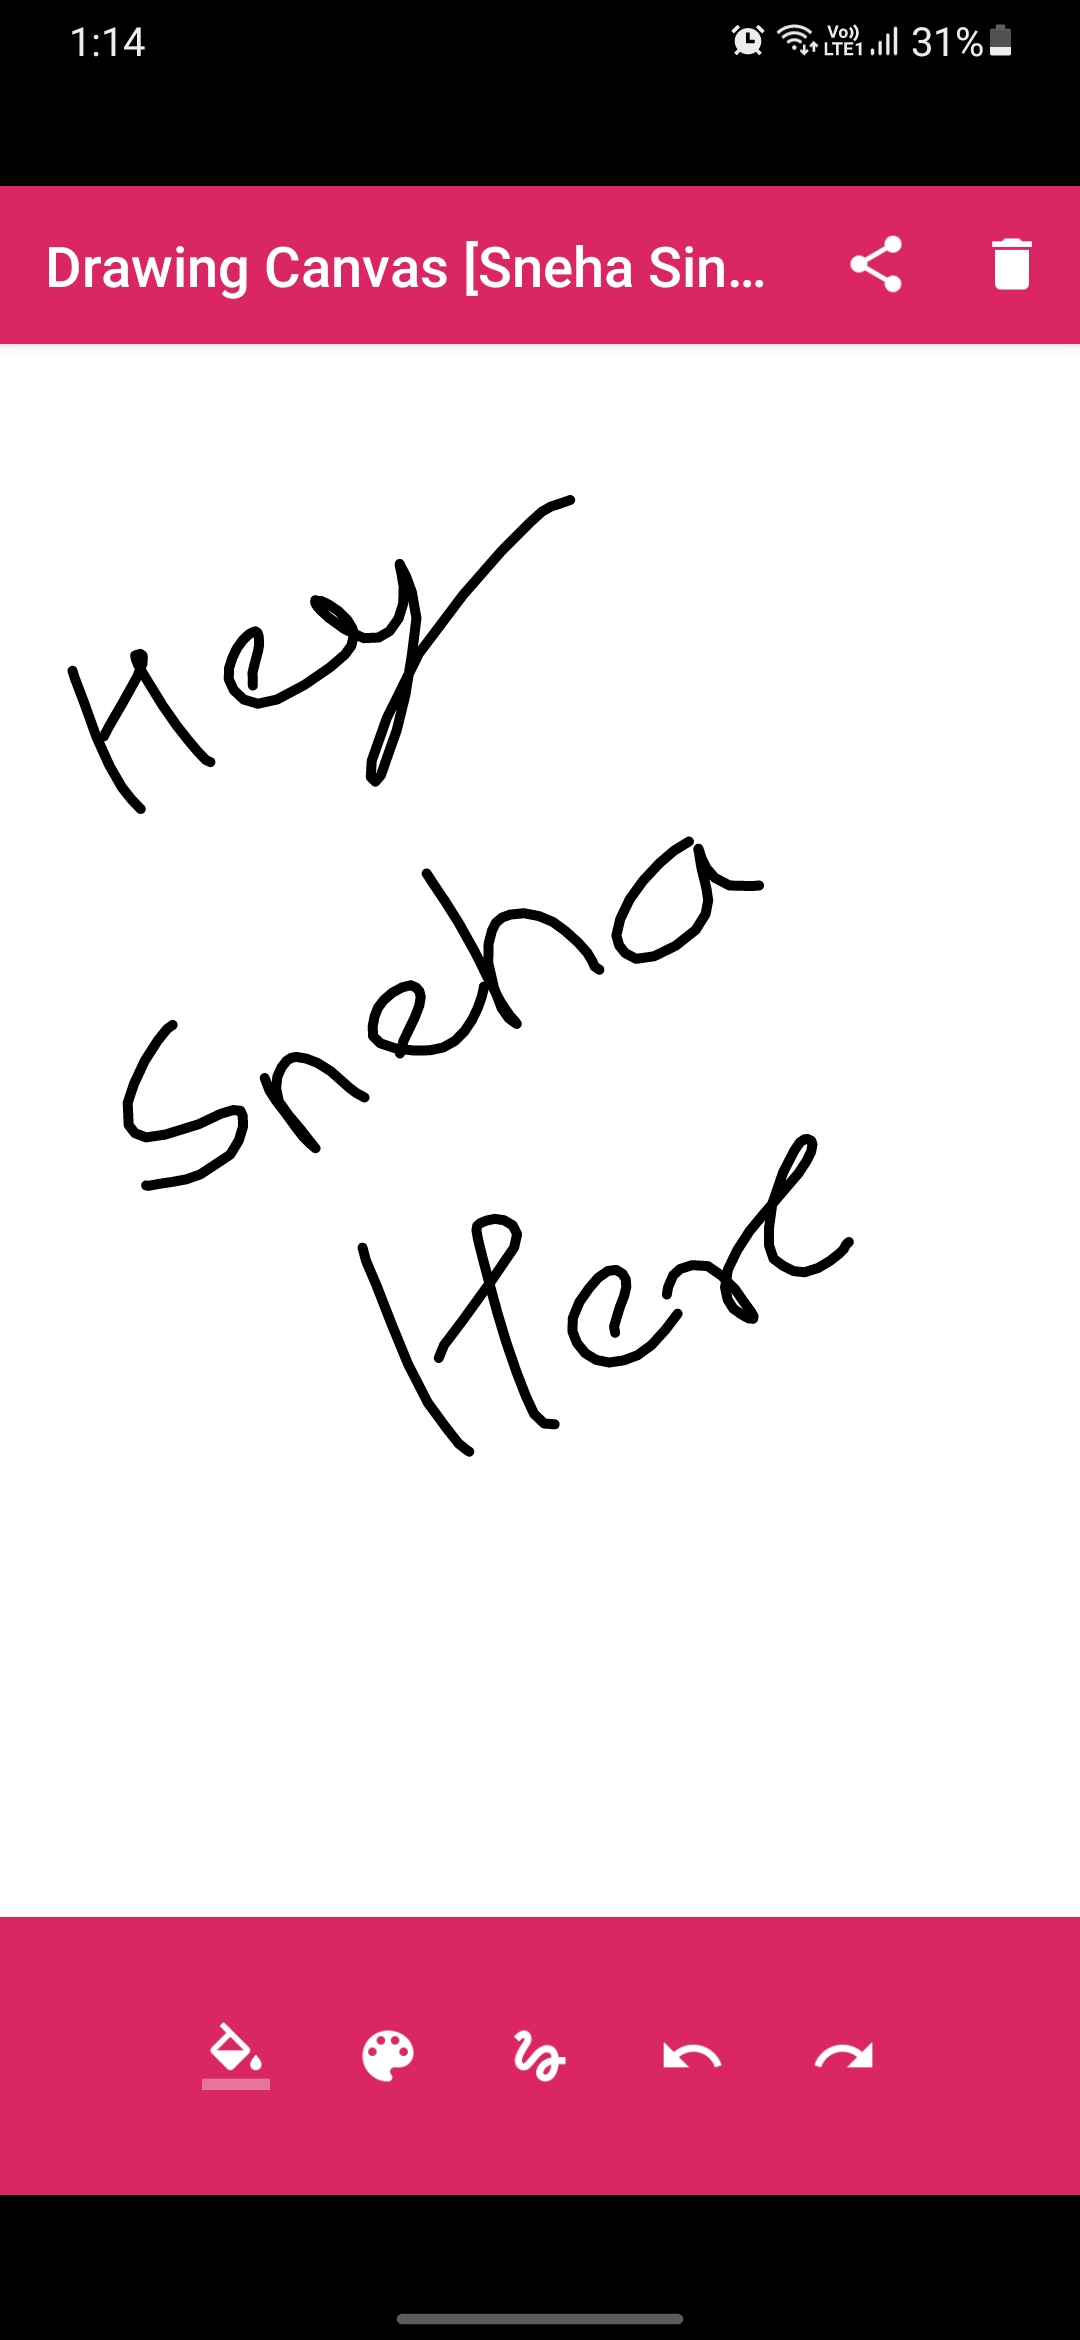 1:14 Vo)) LTE1 31%
Drawing Canvas [Sneha Sin...
Hey
Sneha
Here